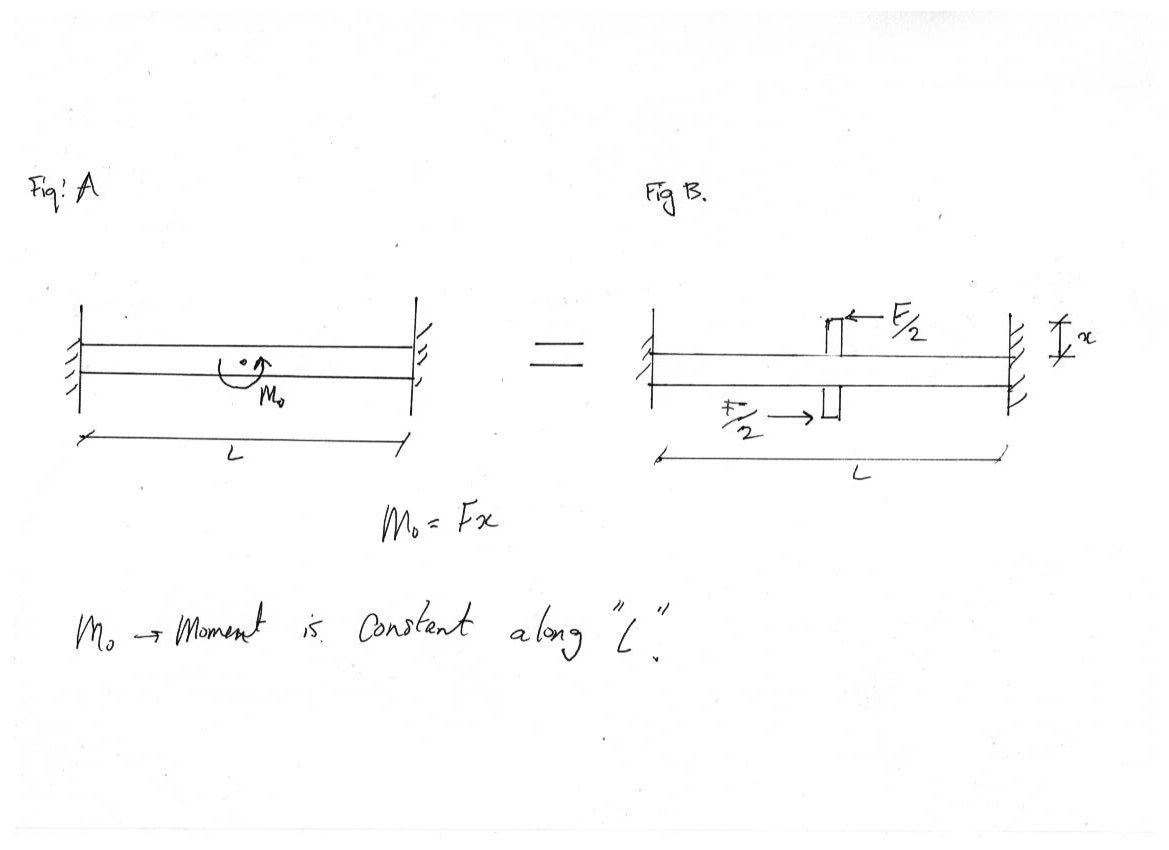 Fig: A
Fig B.
F/2
x
M₀
F/2
L
L
M₀ = Fx
M₀ → Moment is constant along "L".